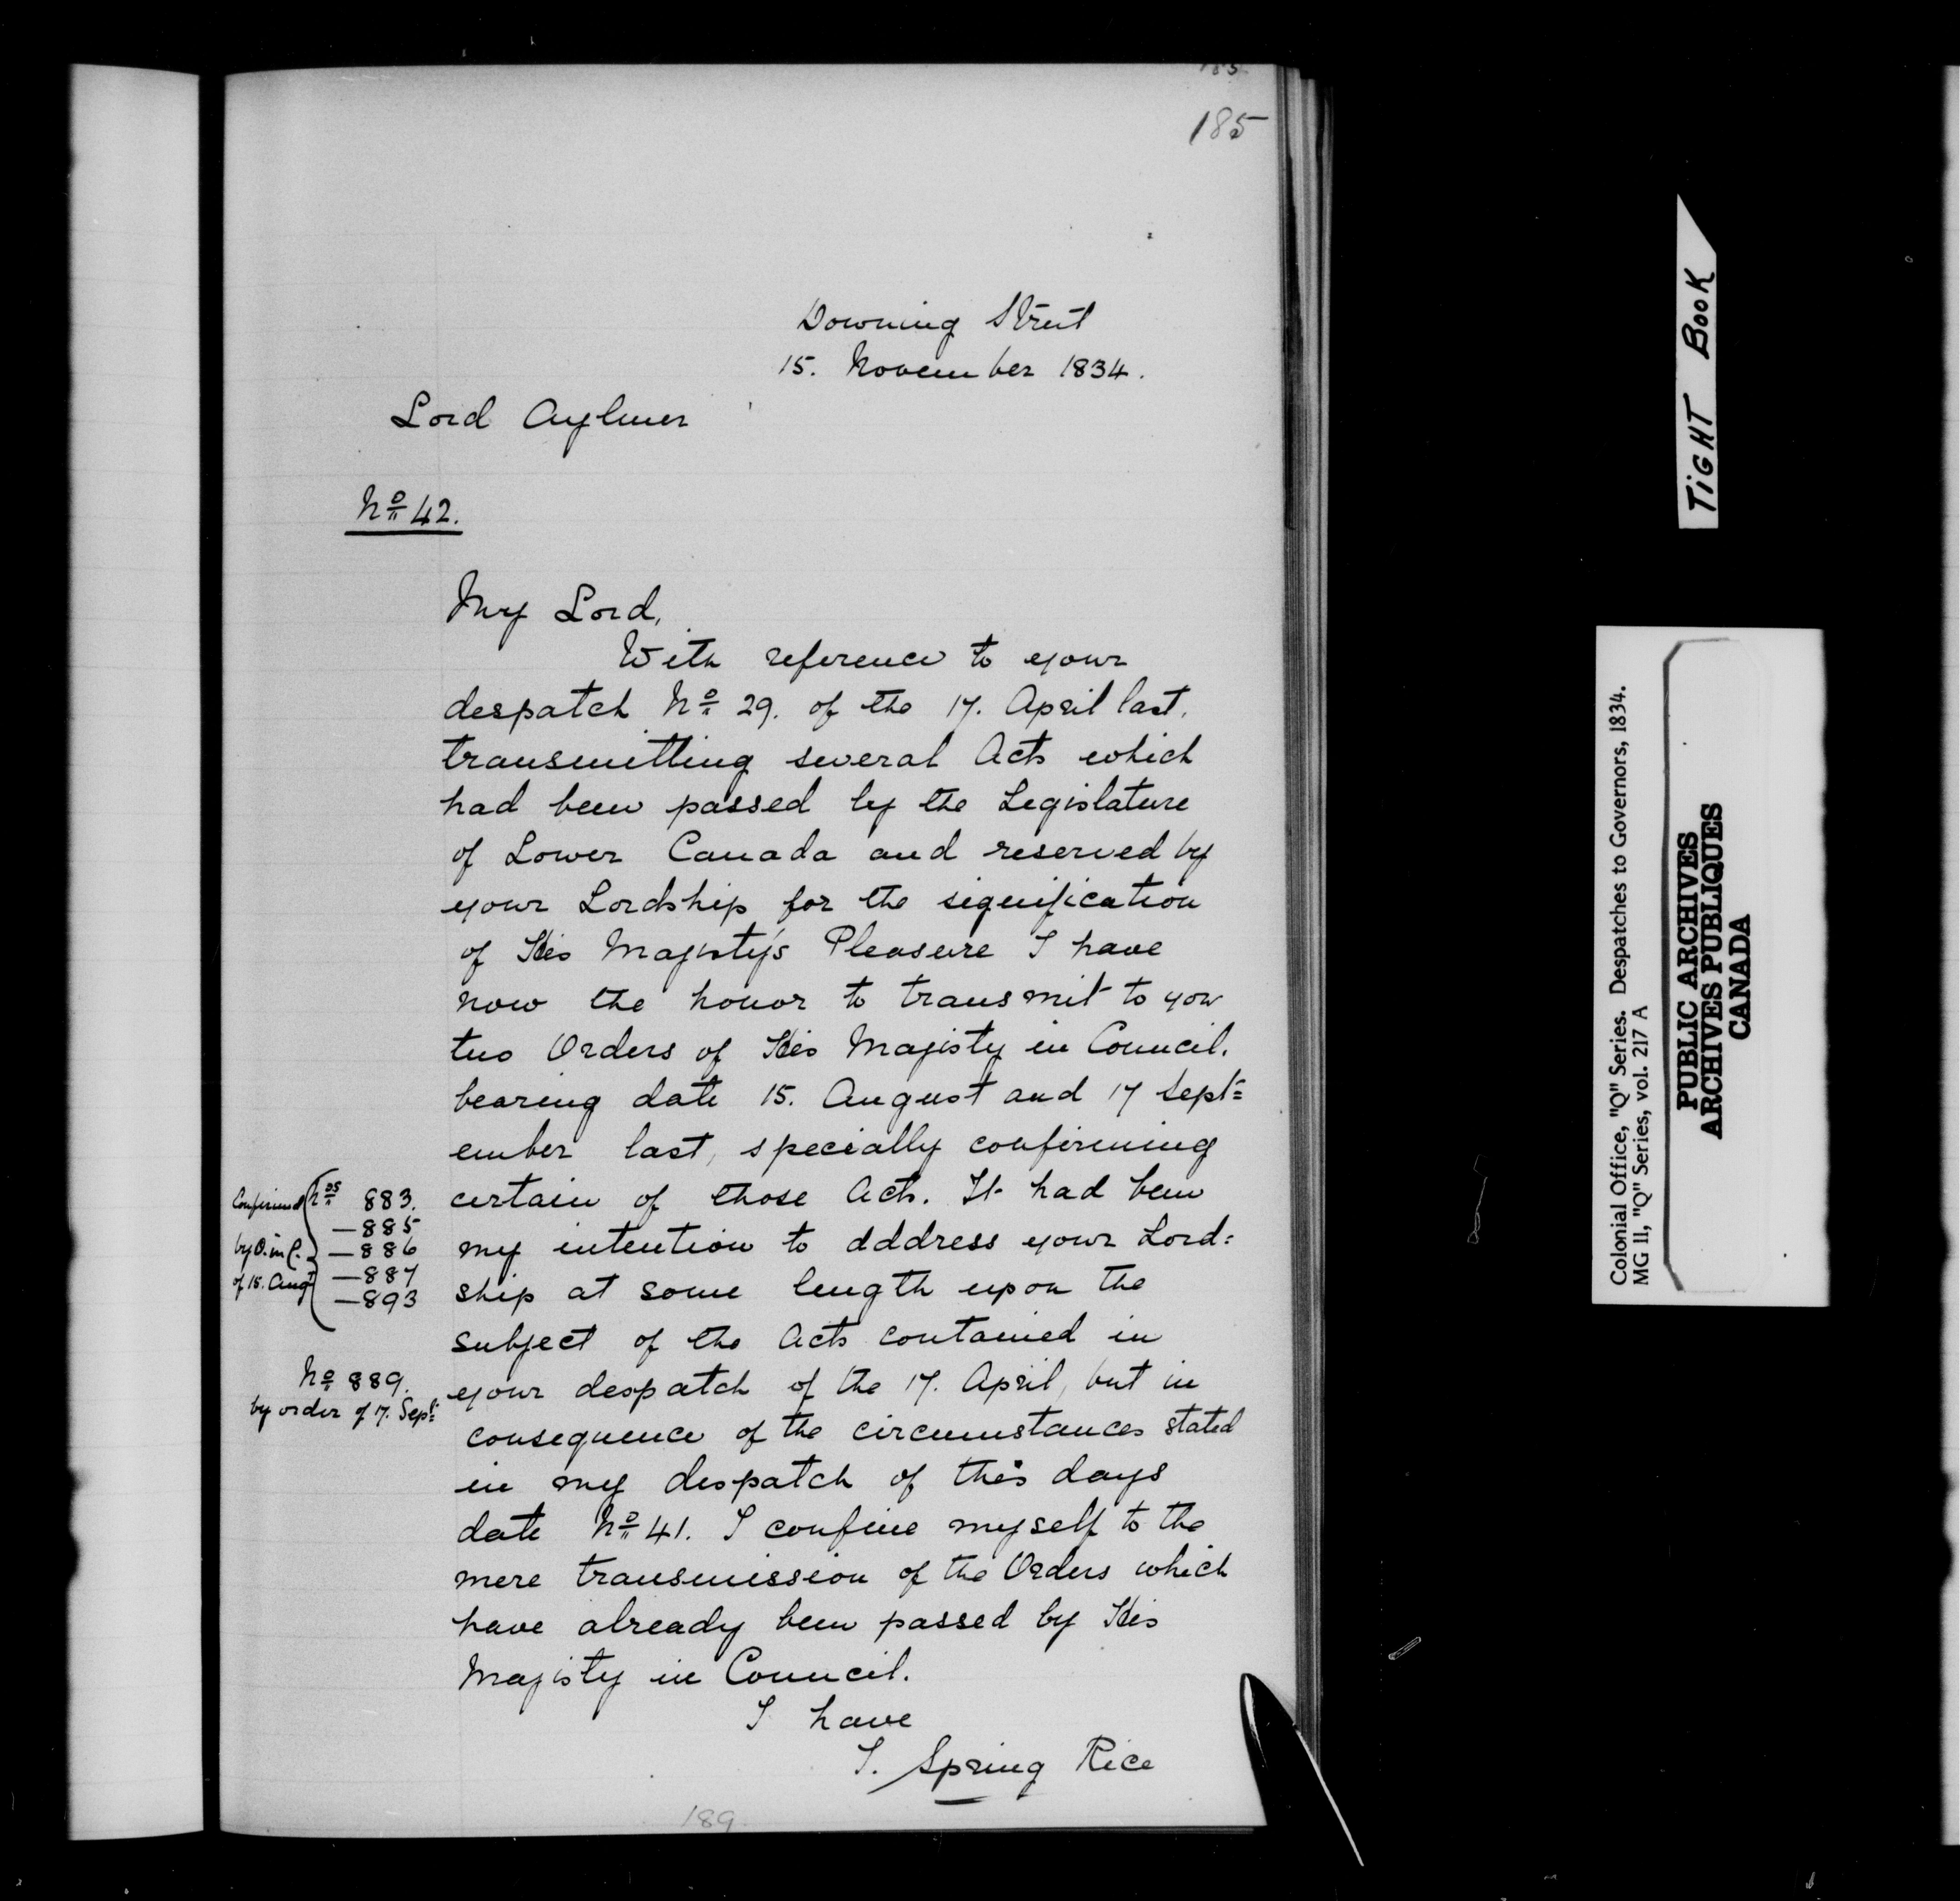 185
Downing Street
15. November 1834.
Lord Aylmer
No 42.
My Lord,
With reference to your
despatch No 29. of the 17. April last,
transmitting several Acts which
had been passed by the Legislature
of Lower Canada and reserved by
your Lordship for the signification
of His Majesty's Pleasure I have
now the honor to transmit to you
two Orders of His Majesty in Council,
bearing date 15. August and 17 Sept=
ember last, specially confirming
certain of those Acts. It had been
my intention to address your Lord=
ship at some length upon the
subject of the Acts contained in
your despatch of the 17. April, but in
consequence of the circumstances stated
in my despatch of this days
date No 41. I confine myself to the
mere transmission of the Orders which
have already been passed by His
Majesty in Council.
I have
T. Spring Rice
Confirmed Nos 883.
—885
by O. in C. —886
of 15. Augt —887
—893
No 889.
by order of 17. Sept.
189
TIGHT BOOK
Colonial Office, "Q" Series. Despatches to Governors, 1834.
MG 11, "Q" Series, vol. 217 A
PUBLIC ARCHIVES
ARCHIVES PUBLIQUES
CANADA